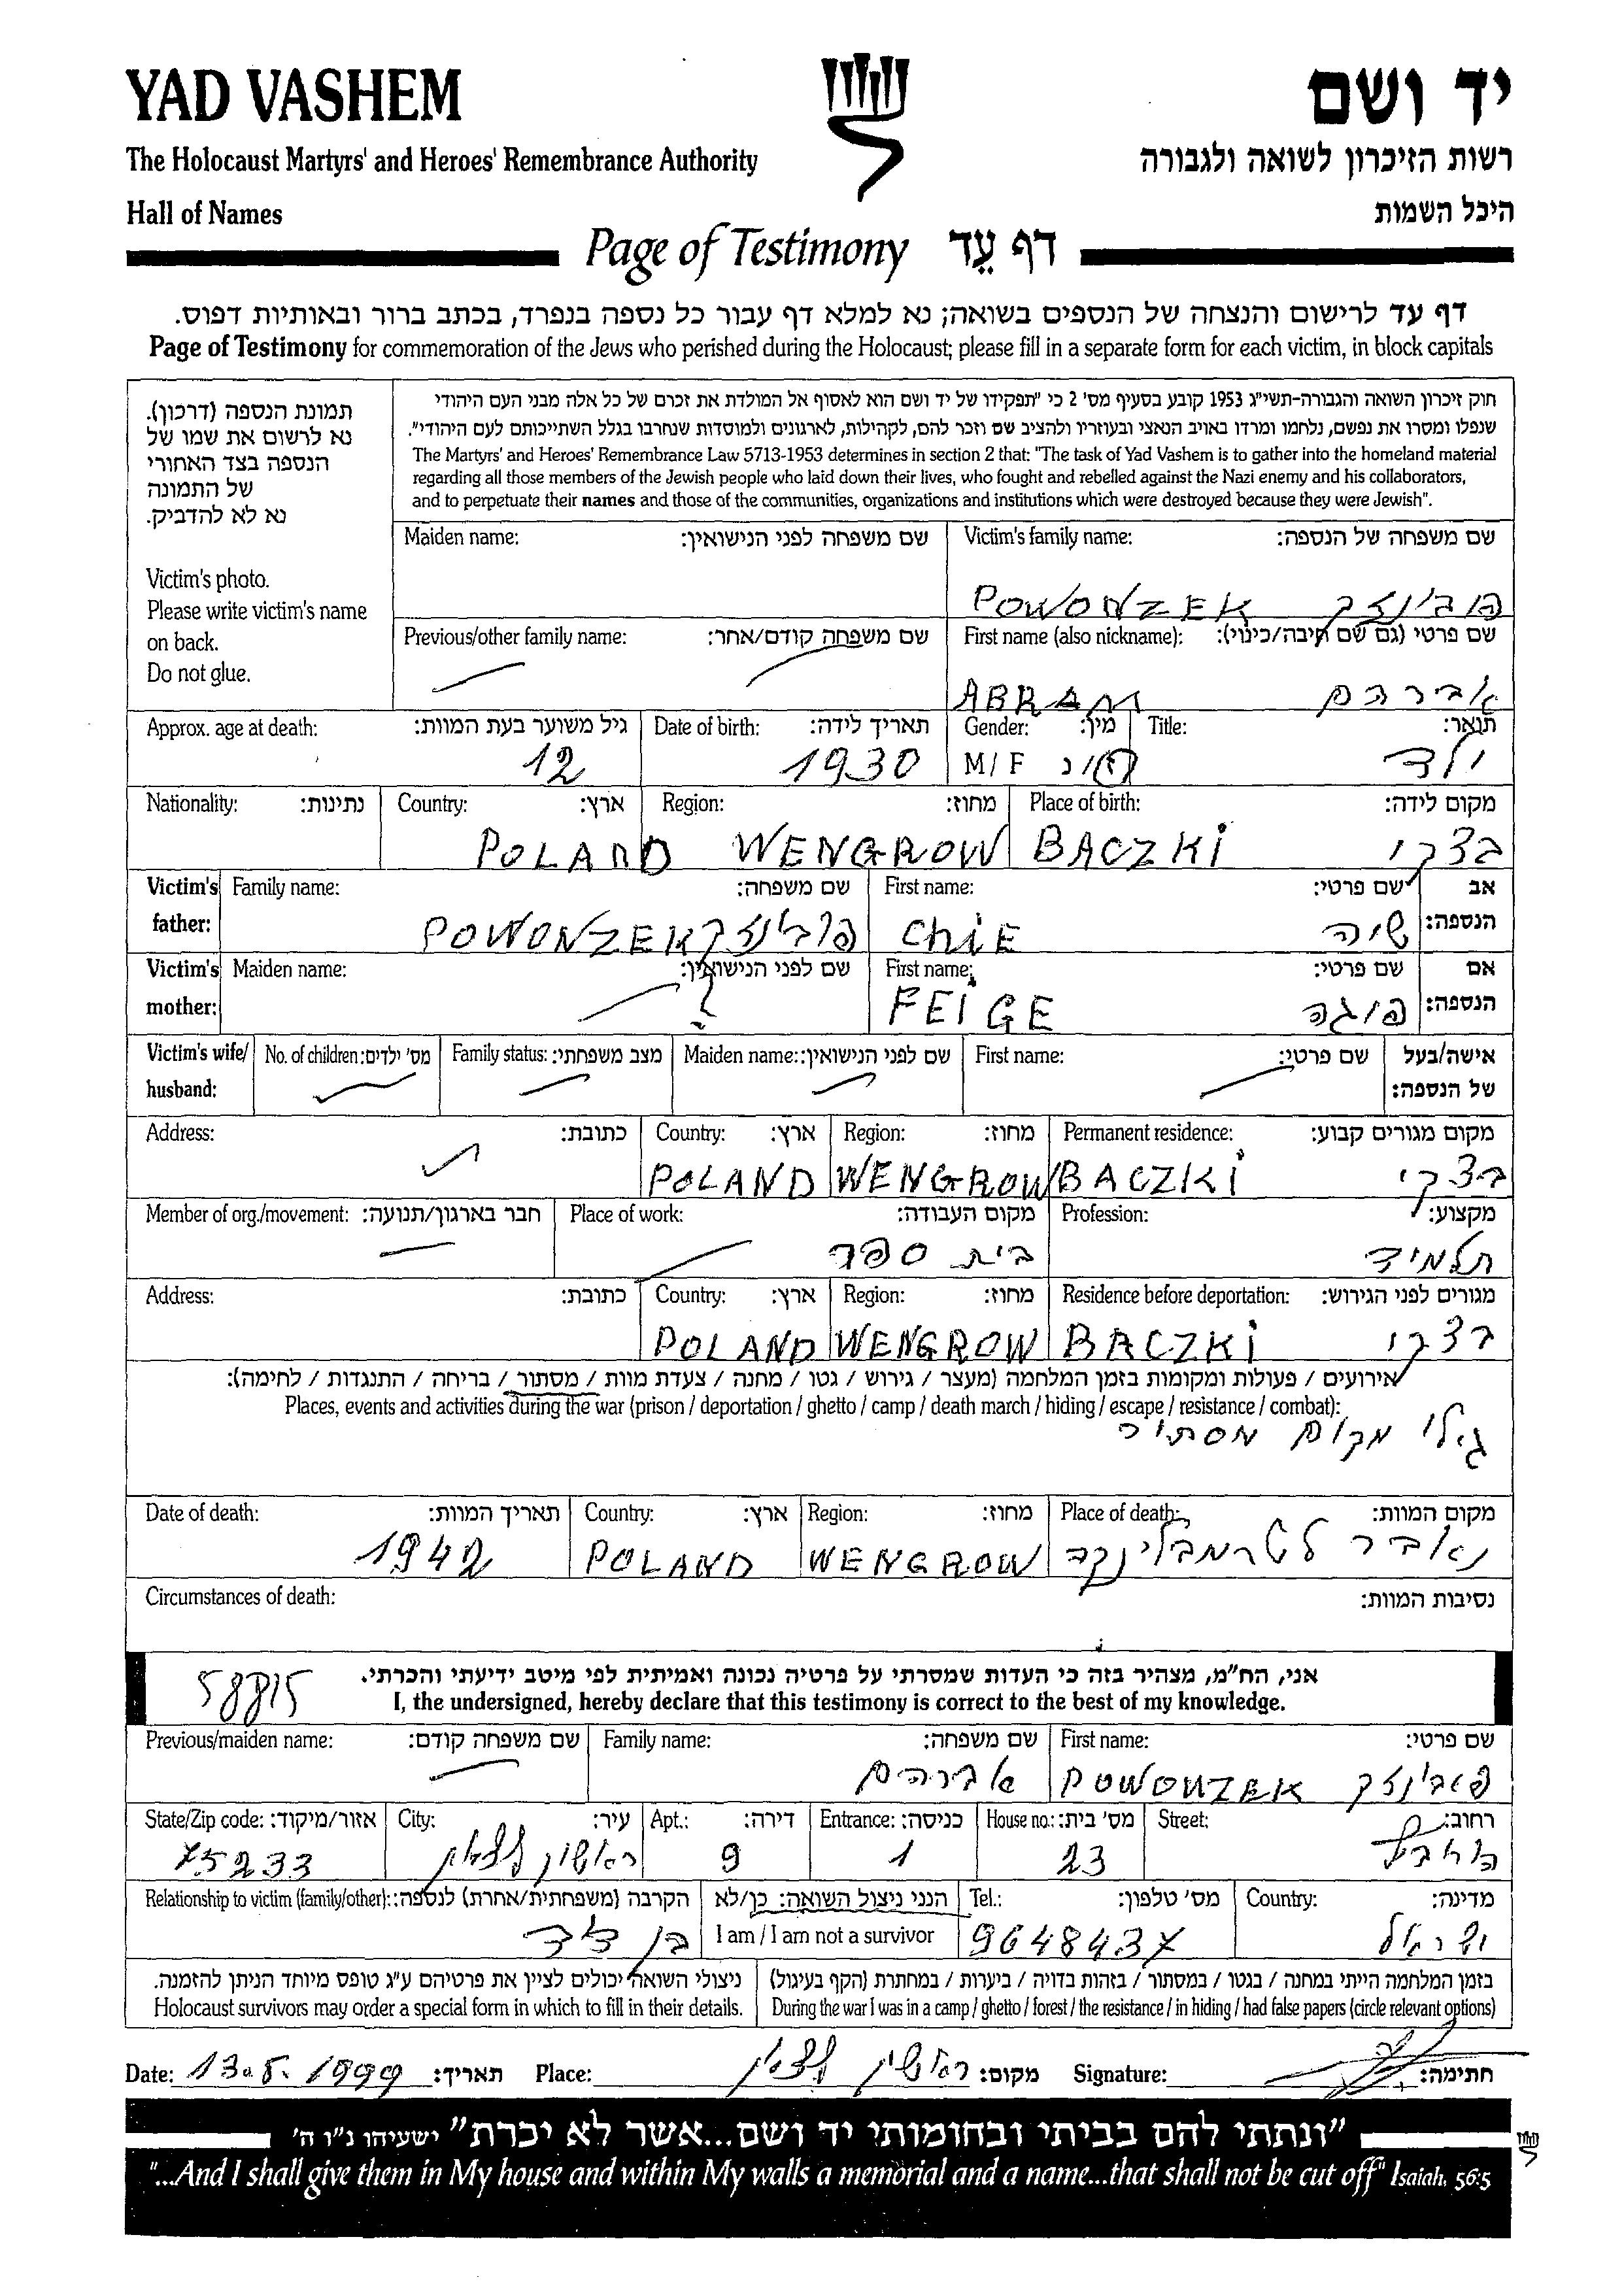 YAD VASHEM
יד ושם
The Holocaust Martyrs' and Heroes' Remembrance Authority
רשות הזיכרון לשואה ולגבורה
Hall of Names
היכל השמות
Page of Testimony דף עֵד
דף עד לרישום והנצחה של הנספים בשואה; נא למלא דף עבור כל נספה בנפרד, בכתב ברור ובאותיות דפוס.
Page of Testimony for commemoration of the Jews who perished during the Holocaust; please fill in a separate form for each victim, in block capitals
תמונת הנספה (דרכון).
נא לרשום את שמו של
הנספה בצד האחורי
של התמונה
נא לא להדביק.
Victim's photo.
Please write victim's name
on back.
Do not glue.
חוק זיכרון השואה והגבורה-תשי"ג 1953 קובע בסעיף מס' 2 כי "תפקידו של יד ושם הוא לאסוף אל המולדת את זכרם של כל אלה מבני העם היהודי
שנפלו ומסרו את נפשם, נלחמו ומרדו באויב הנאצי ובעוזריו ולהציב שם וזכר להם, לקהילות, לארגונים ולמוסדות שנחרבו בגלל השתייכותם לעם היהודי".
The Martyrs' and Heroes' Remembrance Law 5713-1953 determines in section 2 that: "The task of Yad Vashem is to gather into the homeland material
regarding all those members of the Jewish people who laid down their lives, who fought and rebelled against the Nazi enemy and his collaborators,
and to perpetuate their names and those of the communities, organizations and institutions which were destroyed because they were Jewish".
Maiden name: שם משפחה לפני הנישואין: Victim's family name: שם משפחה של הנספה:
POWONZEK פובונזק
Previous/other family name: שם משפחה קודם/אחר: First name (also nickname): שם פרטי (גם שם חיבה/כינוי):
ABRAM אברהם
Approx. age at death: גיל משוער בעת המוות: Date of birth: תאריך לידה: Gender: מין: Title: תואר:
12 1930 M/F ז/נ ילד
Nationality: נתינות: Country: ארץ: Region: מחוז: Place of birth: מקום לידה:
POLAND WENGROW BACZKI בצקי
Victim's father: Family name: שם משפחה: First name: שם פרטי: אב הנספה:
POWONZEK פובונזק CHIE שיה
Victim's mother: Maiden name: שם לפני הנישואין: First name: שם פרטי: אם הנספה:
? FEIGE פיגה
Victim's wife/ husband: No. of children: מס' ילדים: Family status: מצב משפחתי: Maiden name: שם לפני הנישואין: First name: שם פרטי: אישה/בעל של הנספה:
Address: כתובת: Country: ארץ: Region: מחוז: Permanent residence: מקום מגורים קבוע:
POLAND WENGROW BACZKI בצקי
Member of org./movement: חבר בארגון/תנועה: Place of work: מקום העבודה: Profession: מקצוע:
בית ספר תלמיד
Address: כתובת: Country: ארץ: Region: מחוז: Residence before deportation: מגורים לפני הגירוש:
POLAND WENGROW BACZKI בצקי
אירועים / פעולות ומקומות בזמן המלחמה (מעצר / גירוש / גטו / מחנה / צעדת מוות / מסתור / בריחה / התנגדות / לחימה):
Places, events and activities during the war (prison / deportation / ghetto / camp / death march / hiding / escape / resistance / combat):
גילו מקום מסתור
Date of death: תאריך המוות: Country: ארץ: Region: מחוז: Place of death: מקום המוות:
1942 POLAND WENGROW
Circumstances of death: נסיבות המוות:
אני, הח"מ, מצהיר בזה כי העדות שמסרתי על פרטיה נכונה ואמיתית לפי מיטב ידיעתי והכרתי.
I, the undersigned, hereby declare that this testimony is correct to the best of my knowledge.
Previous/maiden name: שם משפחה קודם: Family name: שם משפחה: First name: שם פרטי:
אברהם POWONZEK פובונזק
State/Zip code: אזור/מיקוד: City: עיר: Apt.: דירה: Entrance: כניסה: House no.: מס' בית: Street: רחוב:
75233 ראשון לציון 9 1 23
Relationship to victim (family/other): הקרבה (משפחתית/אחרת) לנספה: הנני ניצול השואה: כן/לא Tel.: מס' טלפון: Country: מדינה:
בן דוד I am / I am not a survivor 9648437 ישראל
ניצולי השואה יכולים לציין את פרטיהם ע"ג טופס מיוחד הניתן להזמנה.
Holocaust survivors may order a special form in which to fill in their details.
בזמן המלחמה הייתי במחנה / בגטו / במסתור / בזהות בדויה / ביערות / במחתרת (הקף בעיגול)
During the war I was in a camp / ghetto / forest / the resistance / in hiding / had false papers (circle relevant options)
Date: 13.5.1999 תאריך: Place: ראשון לציון מקום: Signature: חתימה:
"ונתתי להם בביתי ובחומותי יד ושם...אשר לא יכרת" ישעיהו נ"ו ה'
"...And I shall give them in My house and within My walls a memorial and a name...that shall not be cut off" Isaiah, 56:5